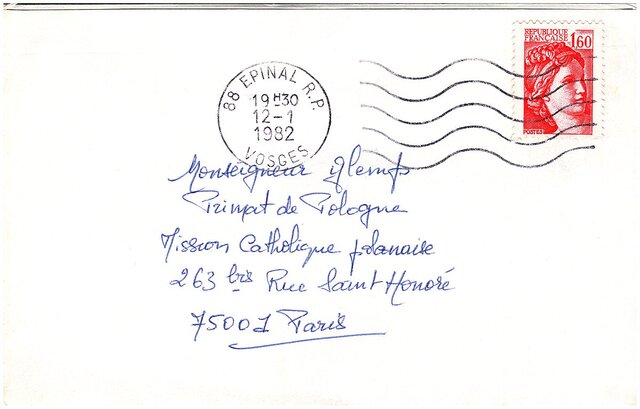 REPUBLIQUE
FRANÇAISE 1,60
POSTES
88 EPINAL R.P.
19H30
12-1
1982
VOSGES
Monseigneur Glemp
Primat de Pologne
Mission Catholique polonaise
263 bis Rue Saint Honoré
75001 Paris